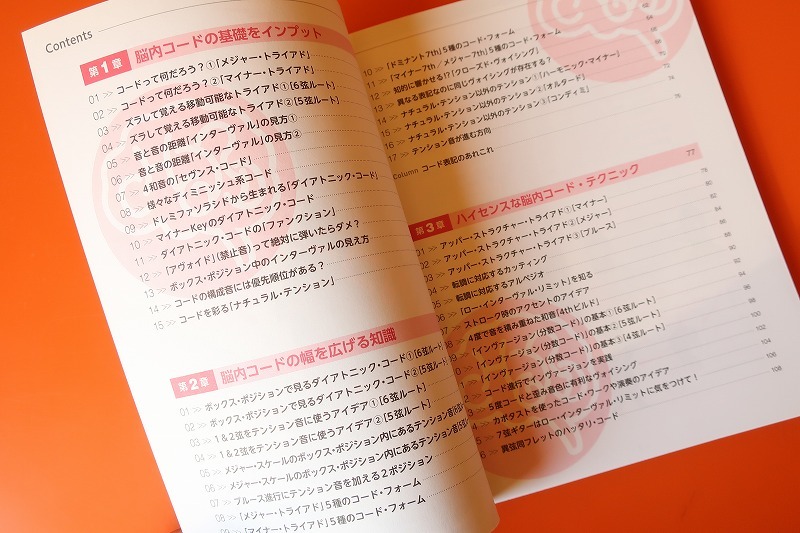 Contents
第1章 脳内コードの基礎をインプット
01 >> コードって何だろう?①「メジャー・トライアド」
02 >> コードって何だろう?②「マイナー・トライアド」
03 >> ズラして覚える移動可能なトライアド①[6弦ルート]
04 >> ズラして覚える移動可能なトライアド②[5弦ルート]
05 >> 音と音の距離「インターヴァル」の見方①
06 >> 音と音の距離「インターヴァル」の見方②
07 >> 4和音の「セヴンス・コード」
08 >> 様々なディミニッシュ系コード
09 >> ドレミファソラシドから生まれる「ダイアトニック・コード」
10 >> マイナーKeyのダイアトニック・コード
11 >> ダイアトニック・コードの「ファンクション」
12 >> 「アヴォイド」(禁止音)って絶対に弾いたらダメ?
13 >> ボックス・ポジション中のインターヴァルの見え方
14 >> コードの構成音には優先順位がある?
15 >> コードを彩る「ナチュラル・テンション」
第2章 脳内コードの幅を広げる知識
01 >> ボックス・ポジションで見るダイアトニック・コード①[6弦ルート
02 >> ボックス・ポジションで見るダイアトニック・コード②[5弦ルート
03 >> 1&2弦をテンション音に使うアイデア①[6弦ルート]
04 >> 1&2弦をテンション音に使うアイデア②[5弦ルート]
05 >> メジャー・スケールのボックス・ポジション内にあるテンション音
06 >> メジャー・スケールのボックス・ポジション内にあるテンション音
07 >> ブルース進行にテンション音を加える2ポジション
08 >> 「メジャー・トライアド」5種のコード・フォーム
09 >> 「マイナー・トライアド」5種のコード・フォーム
10 >> 「ドミナント7th」5種のコード・フォーム
11 >> 「マイナー7th/メジャー7th」5種のコード・フォーム
12 >> 知的に響かせる!?「クローズド・ヴォイシング」
13 >> 異なる表記なのに同じヴォイシングが存在する?
14 >> ナチュラル・テンション以外のテンション①「ハーモニック・マイナー」
15 >> ナチュラル・テンション以外のテンション②「オルタード」
16 >> ナチュラル・テンション以外のテンション③「コンディミ」
17 >> テンション音が進む方向
Column コード表記のあれこれ 76
第3章 ハイセンスな脳内コード・テクニック 77
01 >> アッパー・ストラクチャー・トライアド①「マイナー」 78
02 >> アッパー・ストラクチャー・トライアド②「メジャー」 80
03 >> アッパー・ストラクチャー・トライアド③「ブルース」 82
04 >> 転調に対応するカッティング
05 >> 転調に対応するアルペジオ
「ロー・インターヴァル・リミット」を知る
ストローク時のアクセントのアイデア
4度で音を積み重ねた和音「4thビルド」
「インヴァージョン(分数コード)」の基本①[6弦ルート]
「インヴァージョン(分数コード)」の基本②[5弦ルート]
「インヴァージョン(分数コード)」の基本③[4弦ルート]
コード進行でインヴァージョンを実践
5度コードと歪み音色に有利なヴォイシング
カポタストを使ったコード・ワークや演奏のアイデア
7弦ギターはロー・インターヴァル・リミットに気をつけて!
異弦同フレットのハッタリ・コード